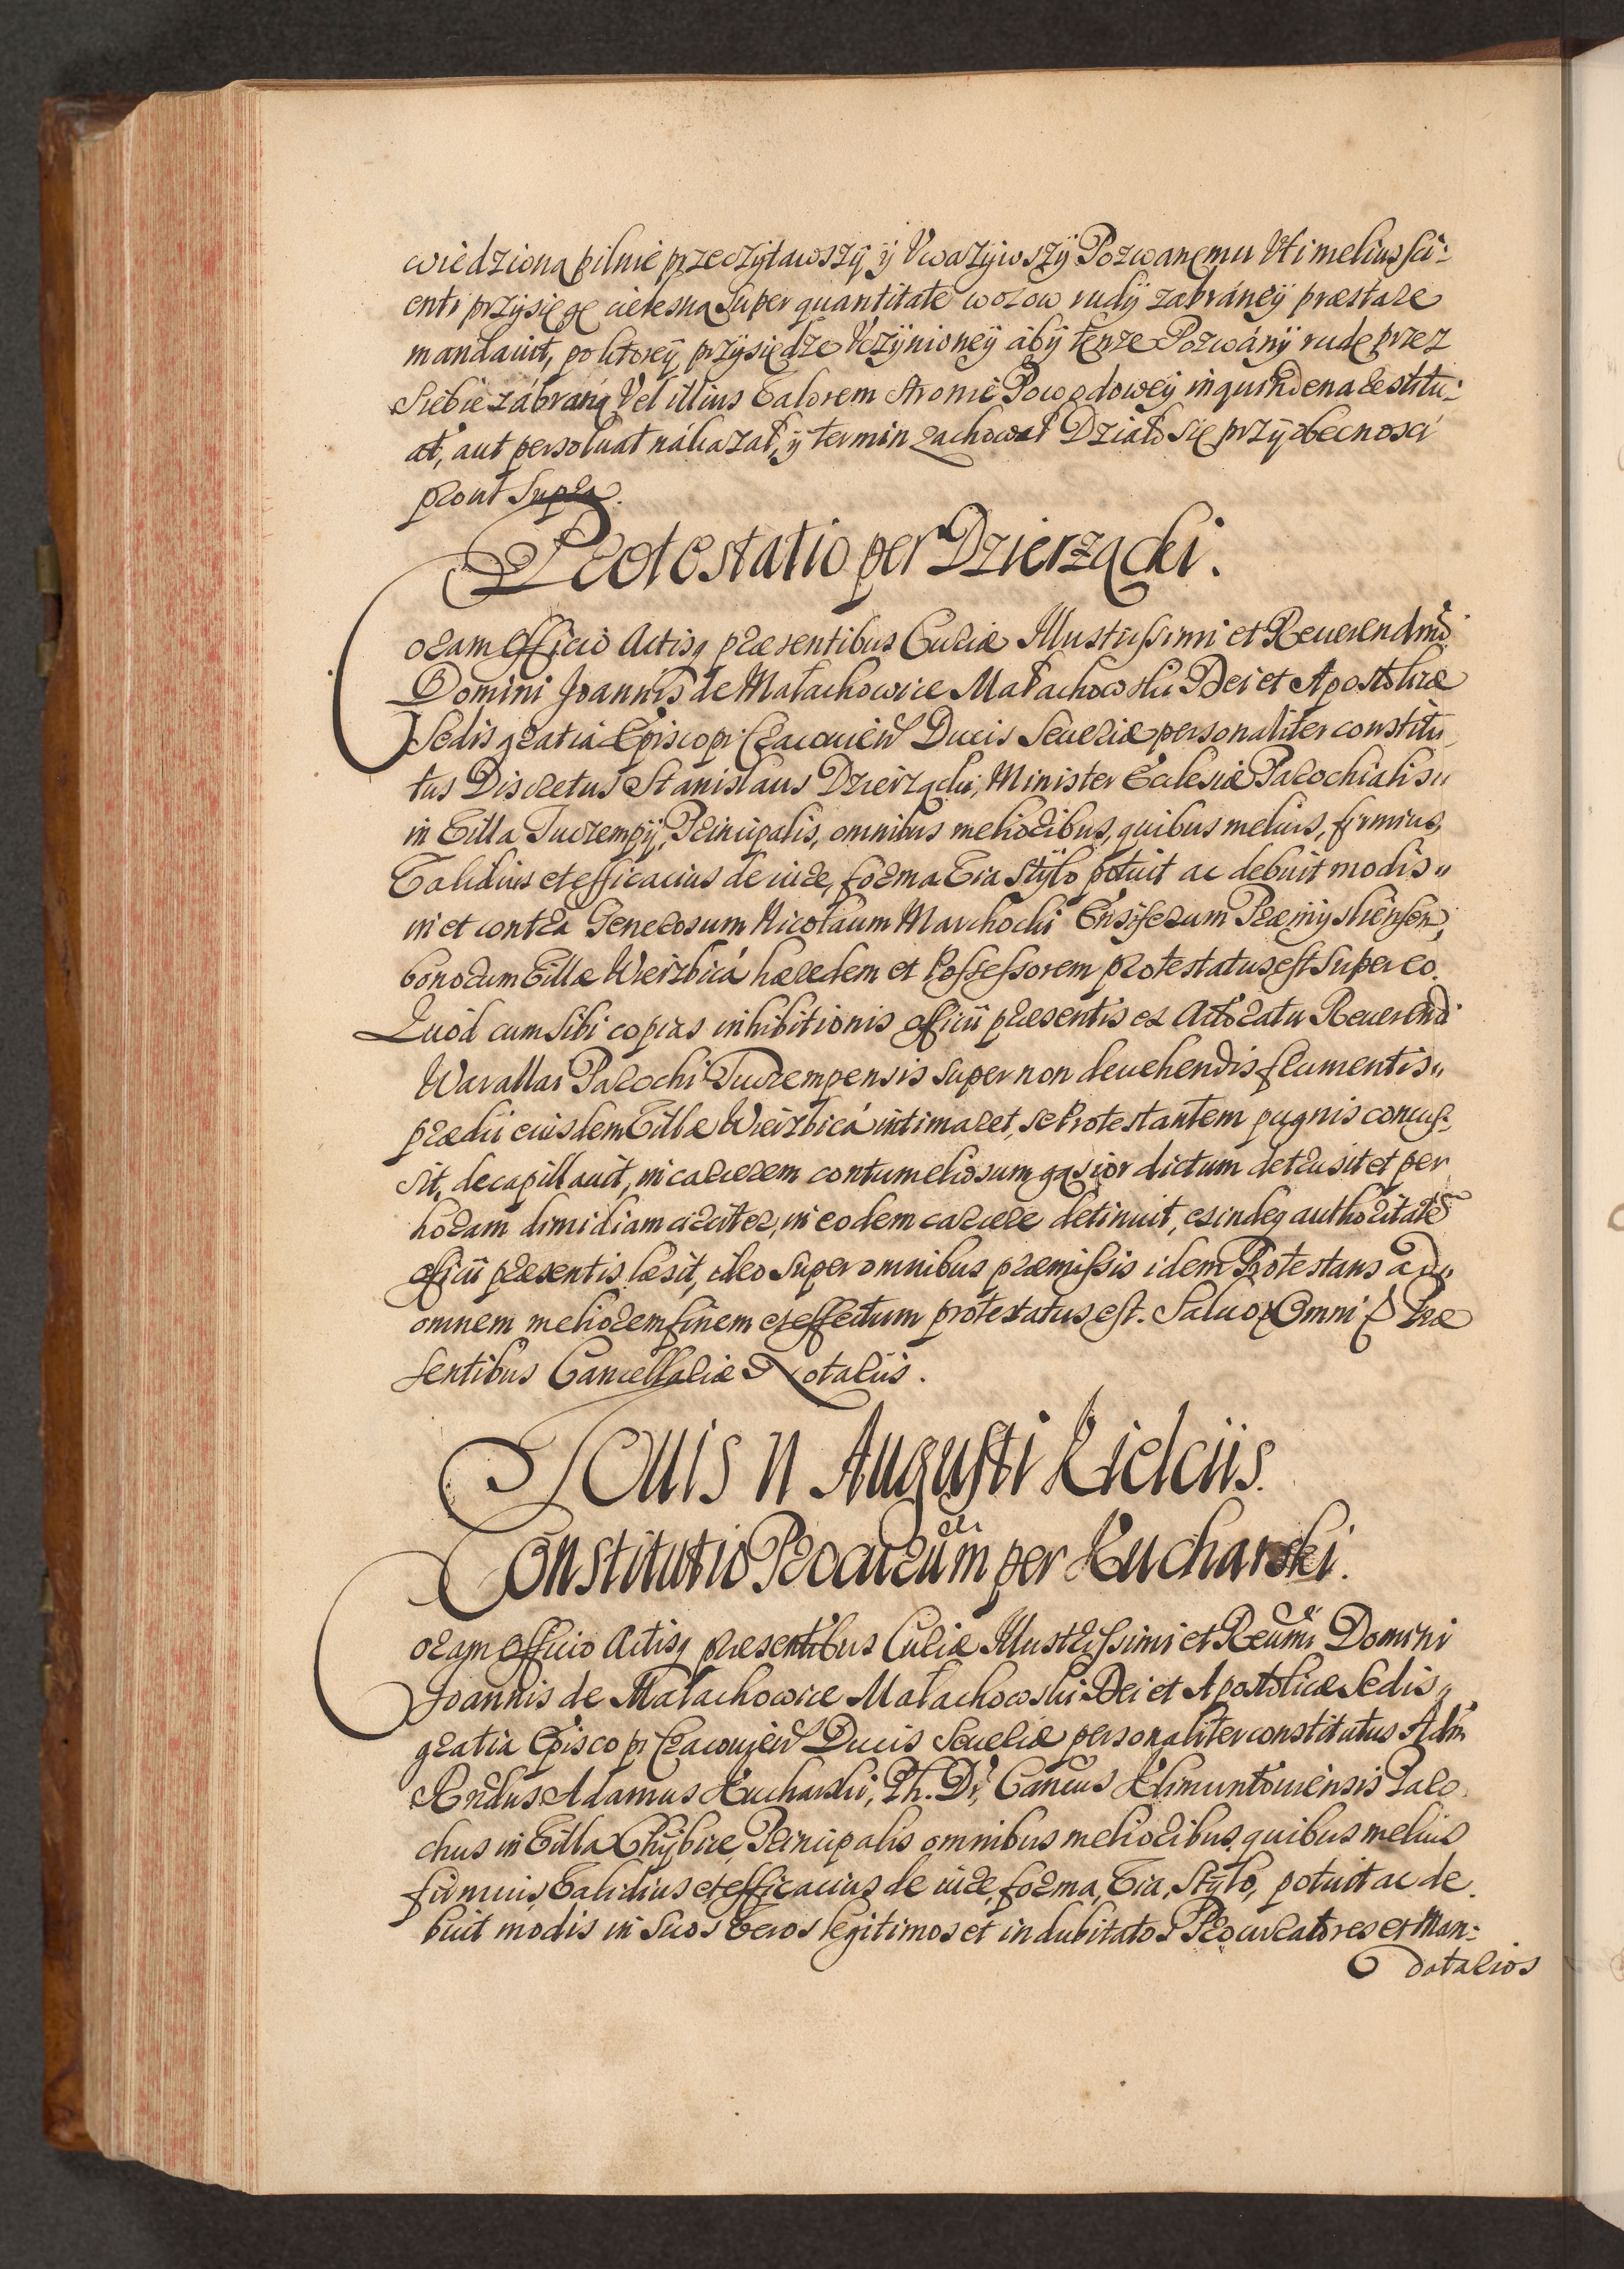 wiedzioną pilnie przeczytawszÿ ÿ Vważywszÿ Pozwanemu Vti melius sci-
enti przysięgę cielesną super quantitate wozow rudÿ zabráneÿ præstare
mandauit, po ktoreÿ przÿsiędze Vczÿnioneÿ ábÿ tenże Pozwánÿ rudę przez
Siebie zábraną Vel illius Valorem stronie Powodoweÿ in quindena restitu-
at, aut persoluat nákazał, ÿ termin zachował Działo się przÿ obecnosci
prout Supra.
Protestatio per Dzierzącki.
Coram Officio Actisq præsentibus Curiæ Illustrissimi et Reuerendmi
Domini Joannis de Małachowice Małachowski Dei et Apostolicæ
Sedis gratia Episcopi Cracouien Ducis Seueriæ personaliter constitu-
tus Discretus Stanislaus Dzierżącki, Minister Ecclesiæ Parochialis
in Villa Tuczempÿ, Principalis, omnibus melioribus, quibus melius, firmius,
Validius et efficacius de iure, forma Via stÿlo potuit ac debuit modis
in et contra Generosum Nicolaum Marchocki Ensiferum Præmÿslien̄sem,
bonorum Villæ Wierzbicá hæredem et Possessorem protestatus est super eo.
Quòd cum sibi copias inhibitionis officii præsentis ex Actoratu Reuerendi
Warallas Parochi Tuczempensis super non deuehendis frumentis
prædii eiusdem Villæ Wierzbicá intimaret, se Protestantem pugnis concus-
sit, decapillauit, in carcerem contumeliosum gąsior dictum detrusit et per
horam dimidiam circiter, in eodem carcere detinuit, exindeq authoritatē
officii præsentis læsit, ideo super omnibus præmissis idem Protestans ad
omnem meliorem finem et effectum protestatus est. Saluo Omni Præ
sentibus Cancellariæ Notariis.
Jouis 11 Augusti Kielciis.
Constitutio Procurum per Kucharski.
Coram Officio Actisq præsentibus Curiæ Illustrissimi et Reumi Domini
Joannis de Małachowice Małachowski Dei et Apostolicæ Sedis
gratia Episcopi Cracouien Ducis Seueriæ personaliter constitutus Adm
Rndus Adamus Kucharski, Ph. Dr, Cancus Klimuntouiensis Paro
chus in Villa Chÿbice, Principalis omnibus melioribus, quibus melius
firmius, Validius et efficacius de iure, forma, Via, stÿlo, potuit ac de
buit modis in suos Veros legitimos et indubitatos Procuratores et Man-
datarios